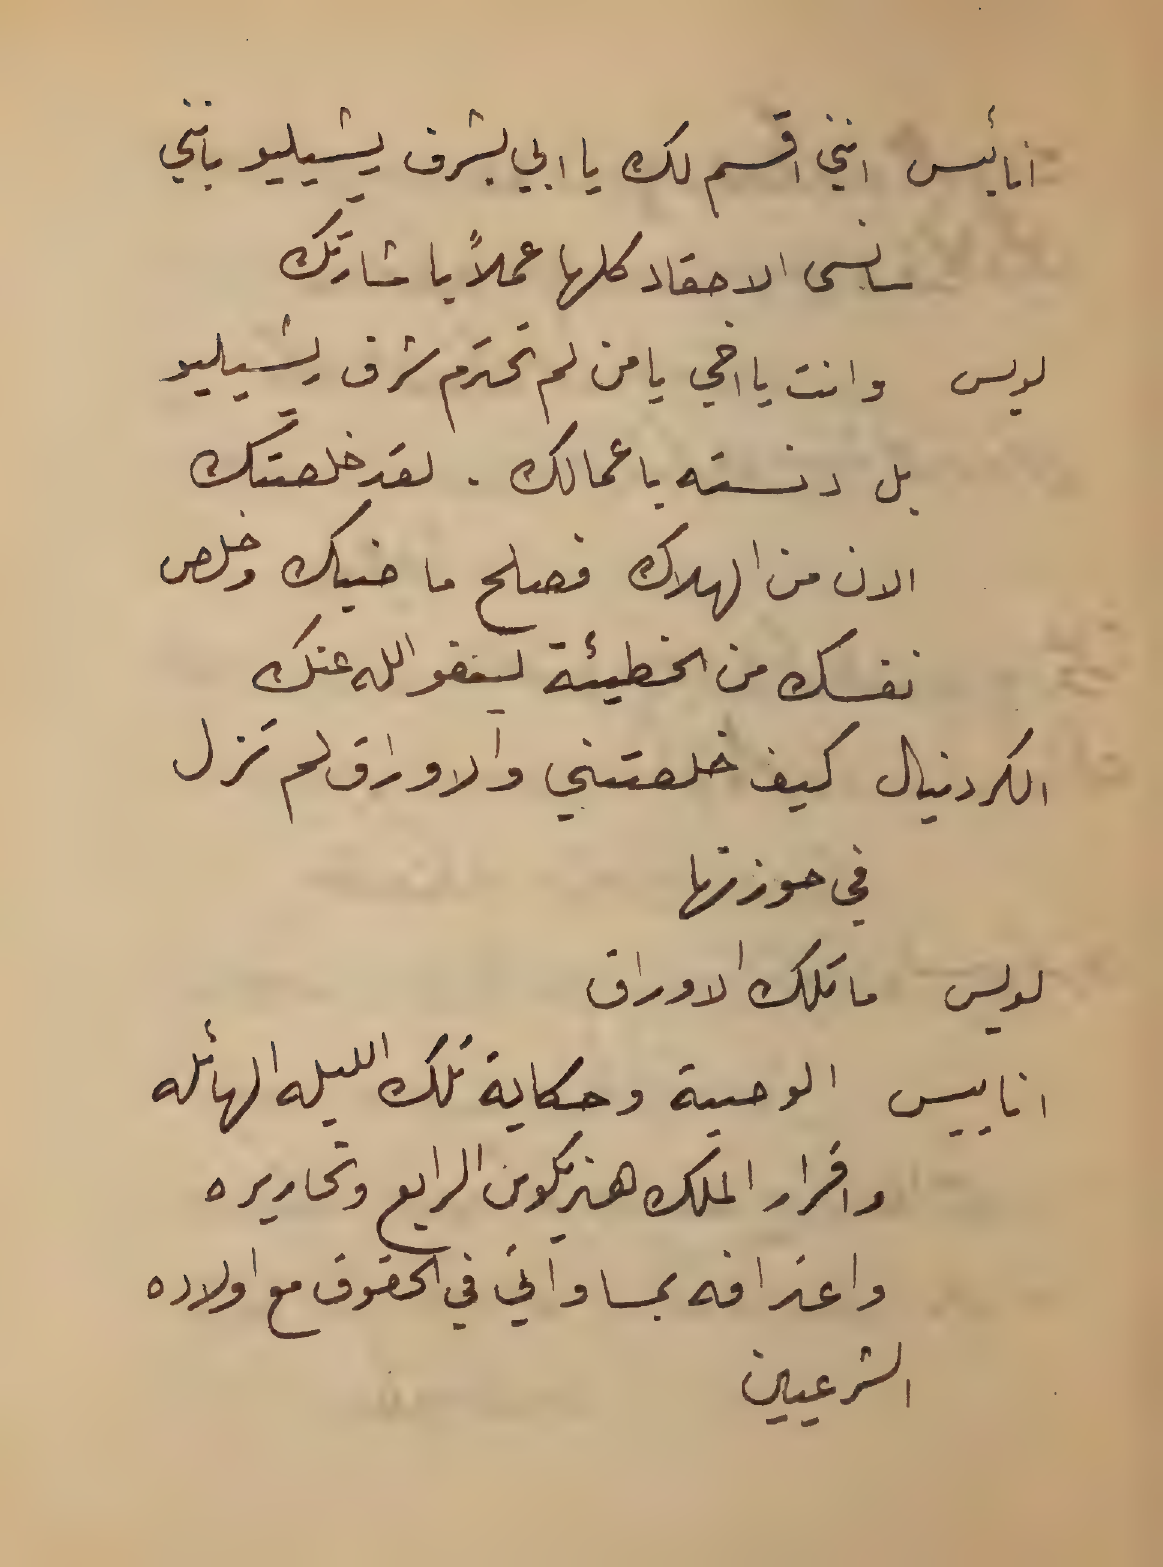 انائيس انني اقسم لك يا ابي بشرف ريشيليو بانني
سانسى الاحقاد كلها عملاً باشارتك
لويس وانت يا اخي يا من لم تحترم شرف ريشيليو
بل دنسته باعمالك . لقد خلصتك
الان من الهلاك فصلح ماضيك وخلص
نفسك من الخطيئة ليعفو الله عنك
الكردنيال كيف خلصتني والاوراق لم تزل
في حوزتها
لويس ما تلك الاوراق
اناييس الوصية وحكاية تلك الليله الهائله
واقرار الملك هنريكوس الرابع وتحاريره
واعترافه بمساواتي في الحقوق مع اولاده
الشرعيين